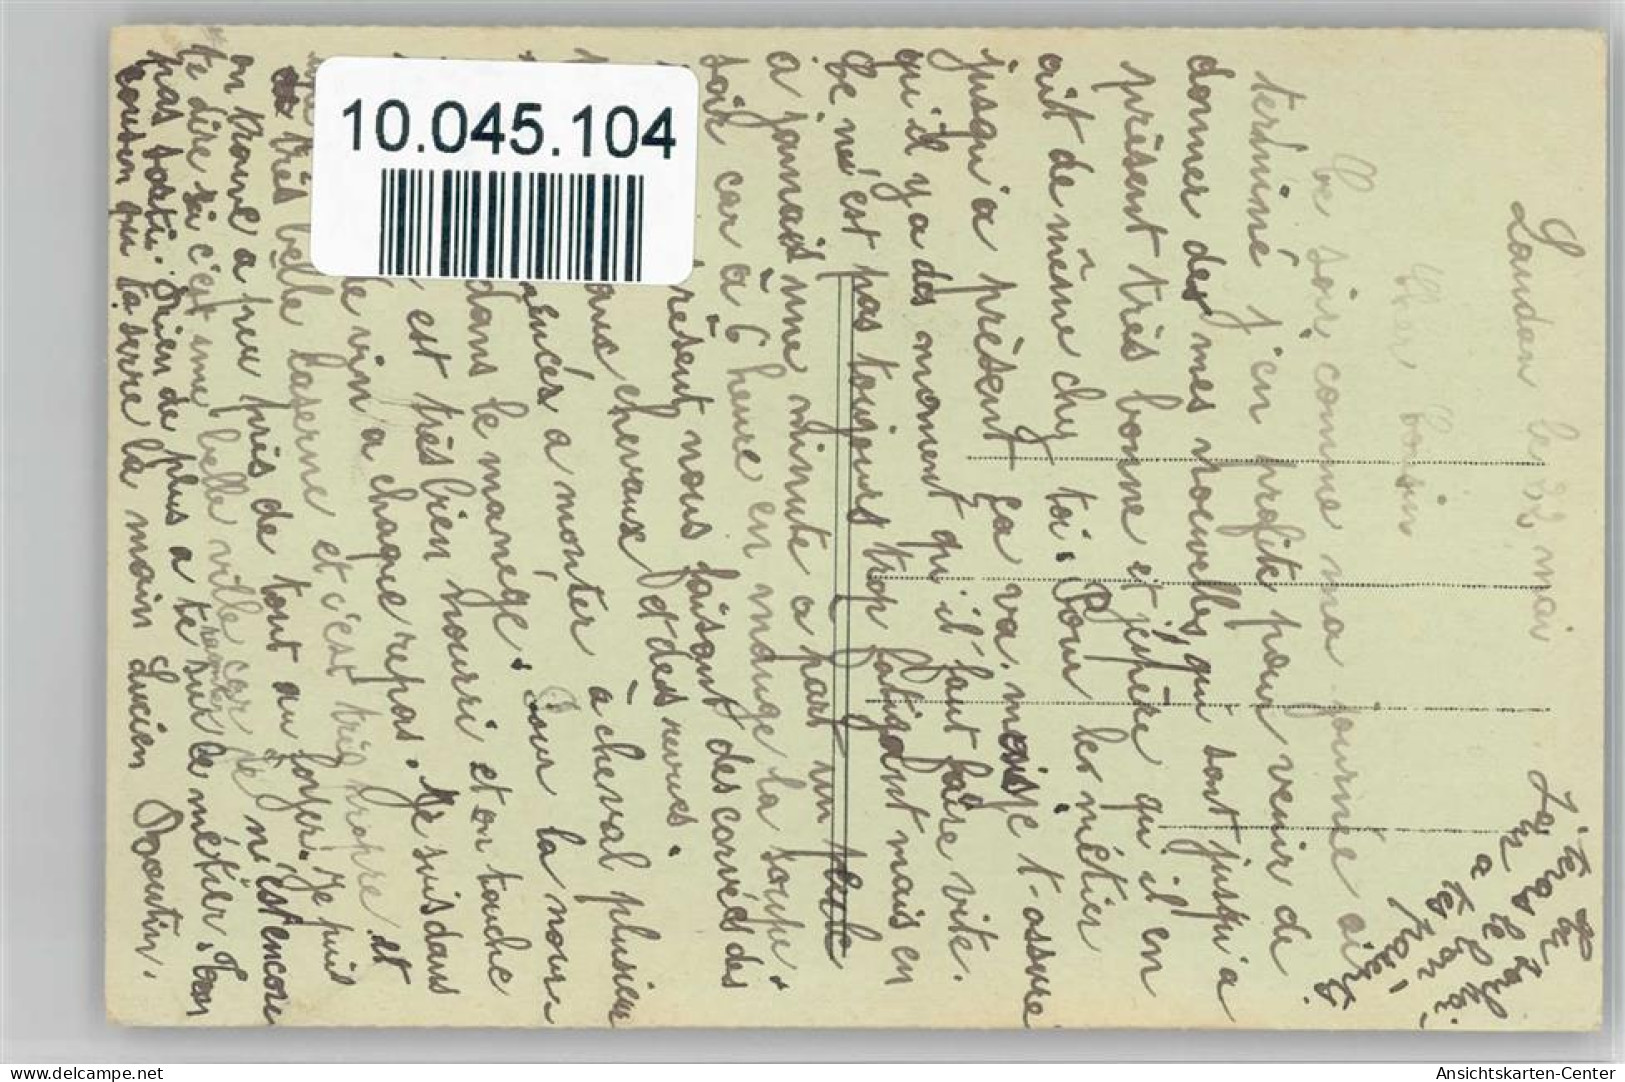 Landau le 22 mai
Cher Cousin
Ce soir comme ma journée ai
terminé j'en profite pour venir de
donner des mes nouvelles qui sont jusqu'a
présent très bonne et j'espère qu'il en
ait de même chez toi. Pour les métier
jusqu'a présent ça va. mais je t'assure
qu'il y a des moment qu'il faut faire vite.
Ce n'est pas toujours trop fatigant mais en
a jamais une minute a part un peule
soir car à 6 heure en mauge la soupe.
résent nous faisont des corvées des
chevaux et des revues.
a monter à cheval plusieur
dans le manege. Pour la nour.
est très bien nourri et on touche
de vin a chaque repas. Je suis dans
très belle caserne et c'est très propre et
on trouve a peu près de tout au foyer. Je puis
te dire si c'est une belle ville car je n'est encore
pas sortir. Rien de plus a te
le métier. Ton
cousin qui ta serre la main Lucien Boutin.
Tu souhai
teras le bon
jour a tes parents
10.045.104
www.delcampe.net
Ansichtskarten-Center